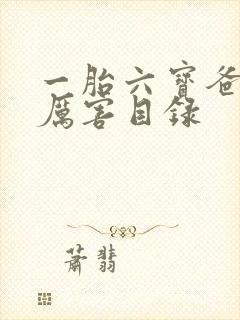 一胎六寶爸
厲害目錄
蕭翡